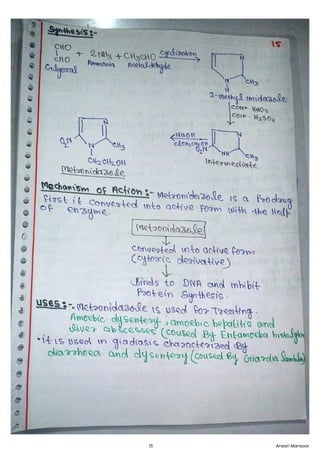 Synthesis:-
15
CHO
| + 2NH3 + CH3CHO cyclization N
CHO Ammonia Acetaldehyde
Glyoxal N CH3
H
2-methyl imidazole
conc. HNO3
conc. H2SO4
N
O2N N CH3
CH2CH2OH
Metronidazole
NaOH
ClCH2CH2OH
N
O2N NH CH3
Intermediate
Mechanism of Action:- Metronidazole is a Prodrug
First it converted into active form with the Help
of enzyme.
Metronidazole
↓
converted into active form
(cytotoxic derivative)
↓
Binds to DNA and inhibit
Protein Synthesis.
Uses:- • Metronidazole is used for Treating.
Amoebic dysentery, amoebic hepatitis and
liver abscesses (caused By Entamoeba histolytica
• it is used in giadiasis characterized By
diarrhoea and dysentery (caused By Giardia lamblia)
15
Ansari Mansoor